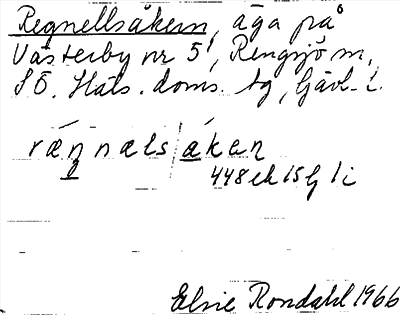 Regnellsåkern, äga på
Västerby nr 5¹, Rengsjö sn,
SÖ. Häls. doms. tg, Gävl. l.
ræŋnæls/åkæn
448 ek 15 G 1 i
Elsie Rondahl 1966